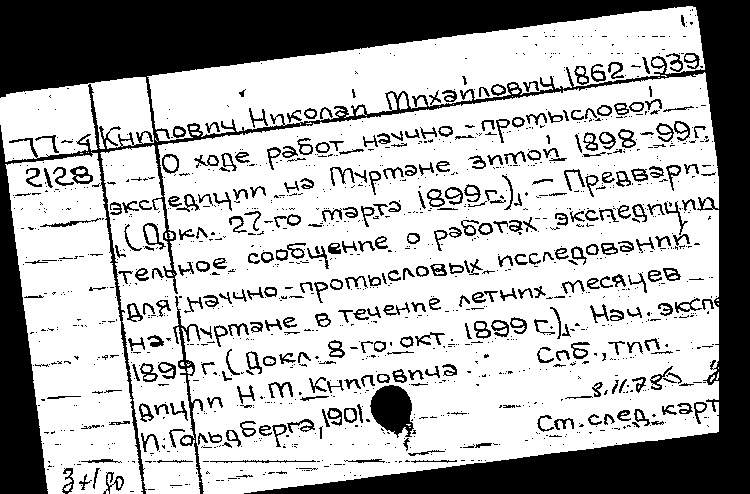 Книпович, Николай Михайлович, 1862-1939.
77-4
2128
О ходе работ научно-промысловой
экспедиции на Мурмане зимой 1898-99г.
(Докл. 27-го марта 1899г.). — Предвари-
тельное сообщение о работах экспедиции
для научно-промысловых исследований
на Мурмане в течение летних месяцев
1899г. (Докл. 8-го окт. 1899г.). Нач. экспе
диции Н.М. Книповича. Спб., тип.
П. Гольдберга, 1901.
Ст. след. карт